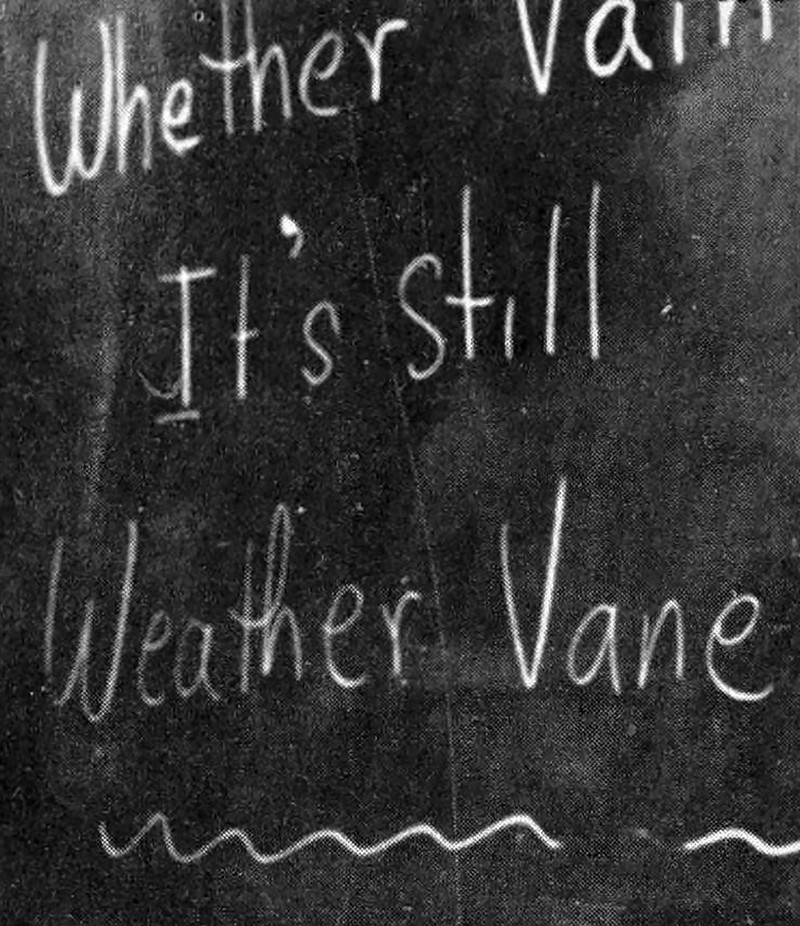 Whether Vain
It's still
Weather Vane